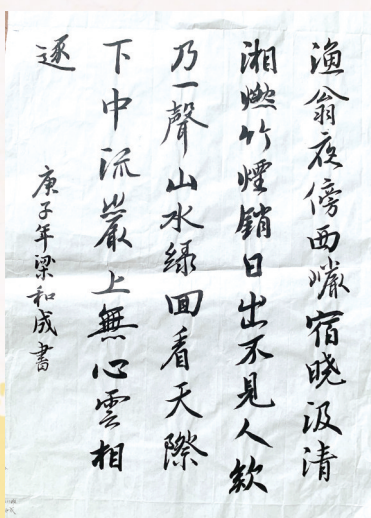 漁翁夜傍西巖宿曉汲清
湘燃竹煙銷日出不見人欸
乃一聲山水綠回看天際
下中流巖上無心雲相
逐
庚子年梁和成書